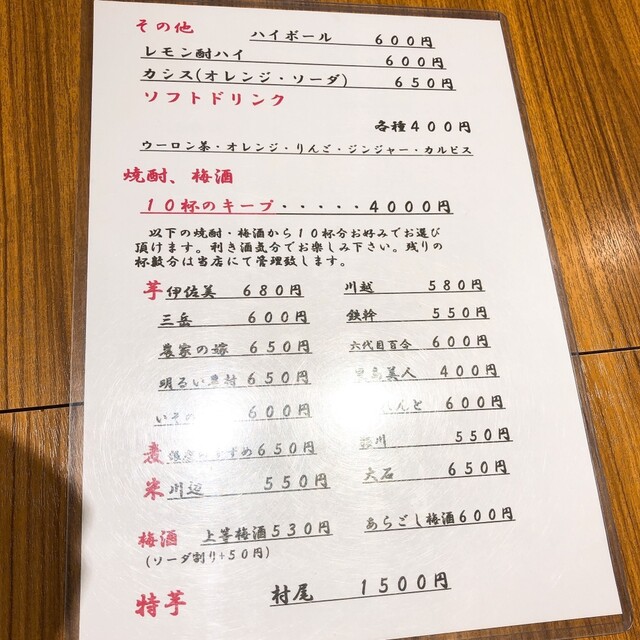 その他
ハイボール 600円
レモン酎ハイ 600円
カシス(オレンジ・ソーダ) 650円
ソフトドリンク
各種400円
ウーロン茶・オレンジ・りんご・ジンジャー・カルピス
焼酎、梅酒
10杯のキープ・・・・・4000円
以下の焼酎・梅酒から10杯分お好みでお選び
頂けます。利き酒気分でお楽しみ下さい。残りの
杯数分は当店にて管理致します。
芋 伊佐美 680円 川越 580円
三岳 600円 鉄幹 550円
農家の嫁 650円 六代目百合 600円
明るい農村 650円 黒島美人 400円
600円 600円
麦 650円 550円
米 川辺 550円 大石 650円
梅酒 上等梅酒530円 あらごし梅酒600円
(ソーダ割り+50円)
特芋 村尾 1500円